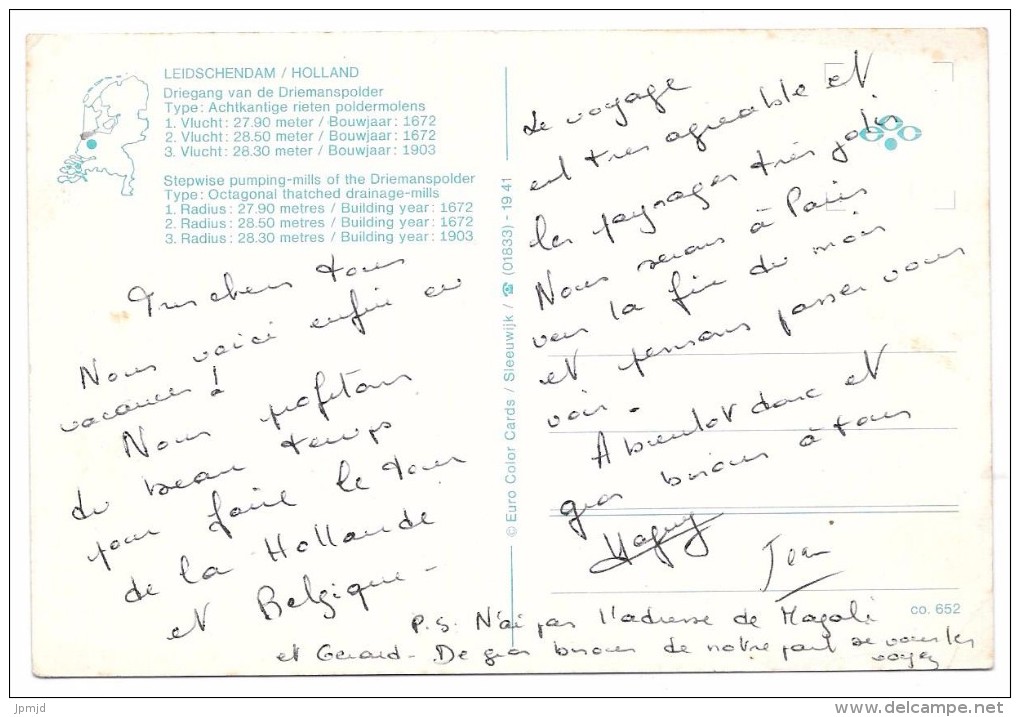 LEIDSCHENDAM / HOLLAND
Driegang van de Driemanspolder
Type: Achtkantige rieten poldermolens
1. Vlucht: 27.90 meter / Bouwjaar: 1672
2. Vlucht: 28.50 meter / Bouwjaar: 1672
3. Vlucht: 28.30 meter / Bouwjaar: 1903
Stepwise pumping-mills of the Driemanspolder
Type: Octagonal thatched drainage-mills
1. Radius: 27.90 metres / Building year: 1672
2. Radius: 28.50 metres / Building year: 1672
3. Radius: 28.30 metres / Building year: 1903
Tres chers tous
Nous voici enfin en
vacances !
Nous profitons
du beau temps
pour faire le tour
de la Hollande
et Belgique -
© Euro Color Cards / Sleeuwijk / ☎ (01833) - 1941
Le voyage
est tres agreable et
les paysages très jolis
Nous serons à Paris
vers la fin du mois
et pensons passer vous
voir.
A bientot donc et
gros bisous à tous
Maguy
Jean
co. 652
P.S. N'ai pas l'adresse de Magali
et Gerard - De gros bisous de notre part si vous les
voyez
delcampe.net
jpmjd
www.delcampe.net